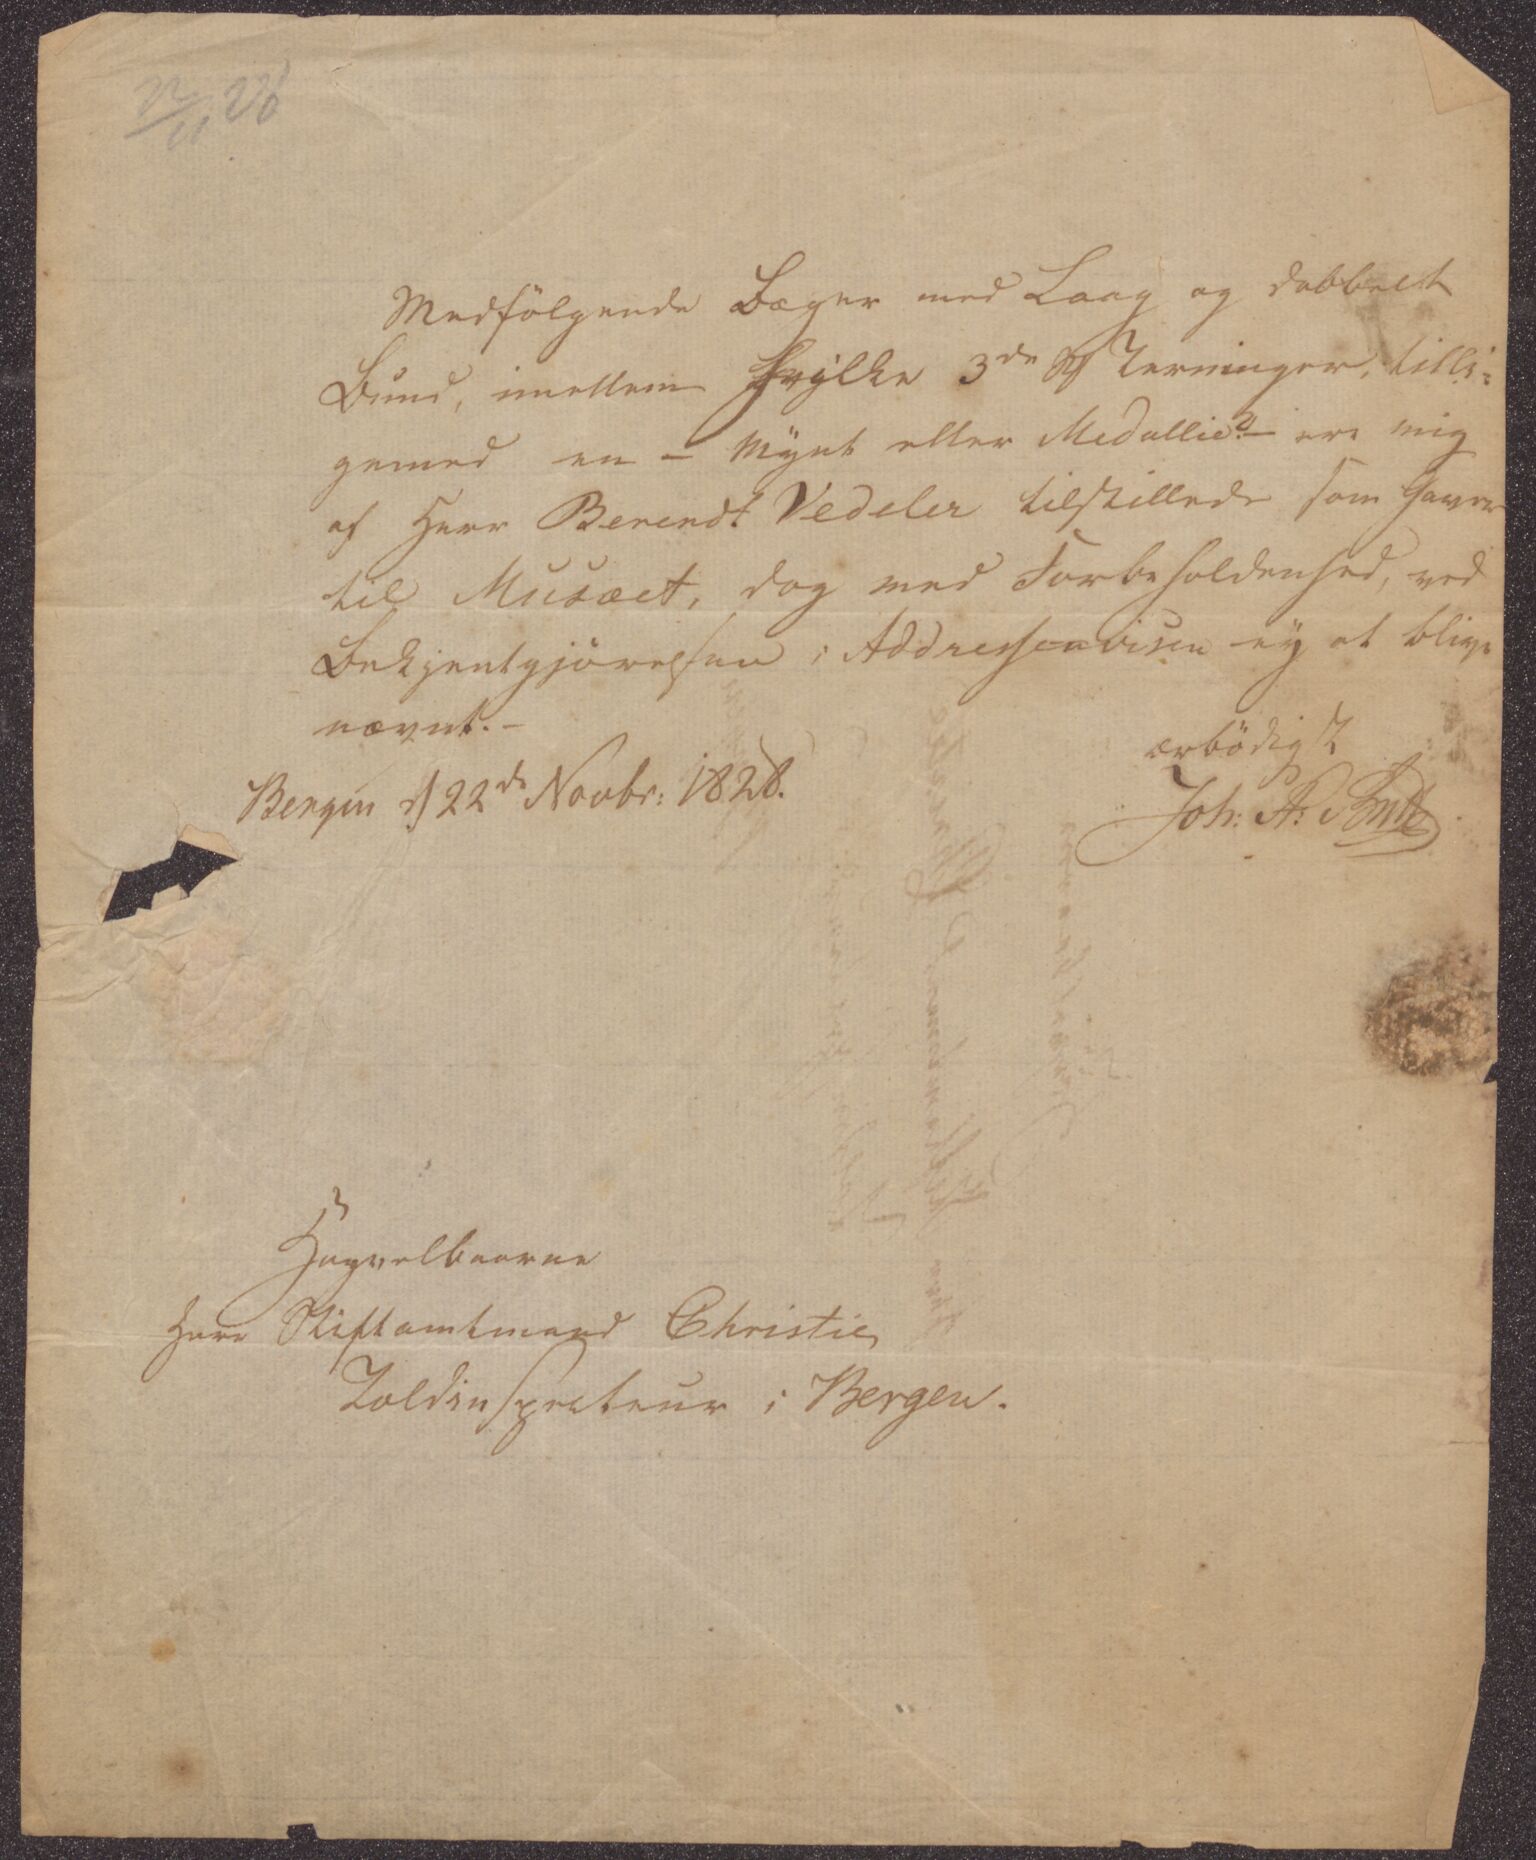 22/11 28
Medfölgende Bæger med Laag og dobbelt
Bund, imellem hvilke 3de Terninger, tilli=
gemed en – Mynt eller Medallie? – ere mig
af Herr Berendt Vedeler tilstillede som Gaver
til Musæet, dog med Forbeholdenhed, ved
Bekjentgjörelsen i Addresseavisen ey at blive
nævnt. –
ærbödigst
Bergen d 22de Novbr: 1828.
Joh: A:
Høyvelbaarne
Herr Stiftamtmand Christie,
Toldinspecteur i Bergen.